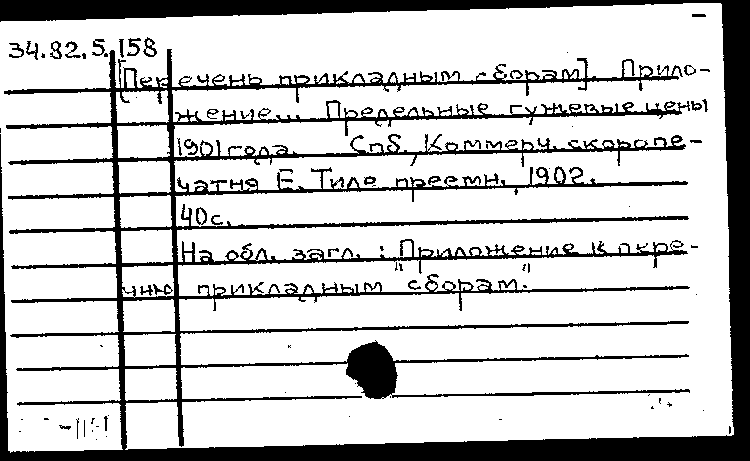 34.82.5.158
[Перечень прикладным сборам]. Прило-
жение... Предельные гужевые цены
1901 года. Спб., Коммерч. скоропе-
чатня Е. Тиле преемн., 1902.
40с.
На обл. загл.: "Приложение к пере-
чню прикладным сборам."